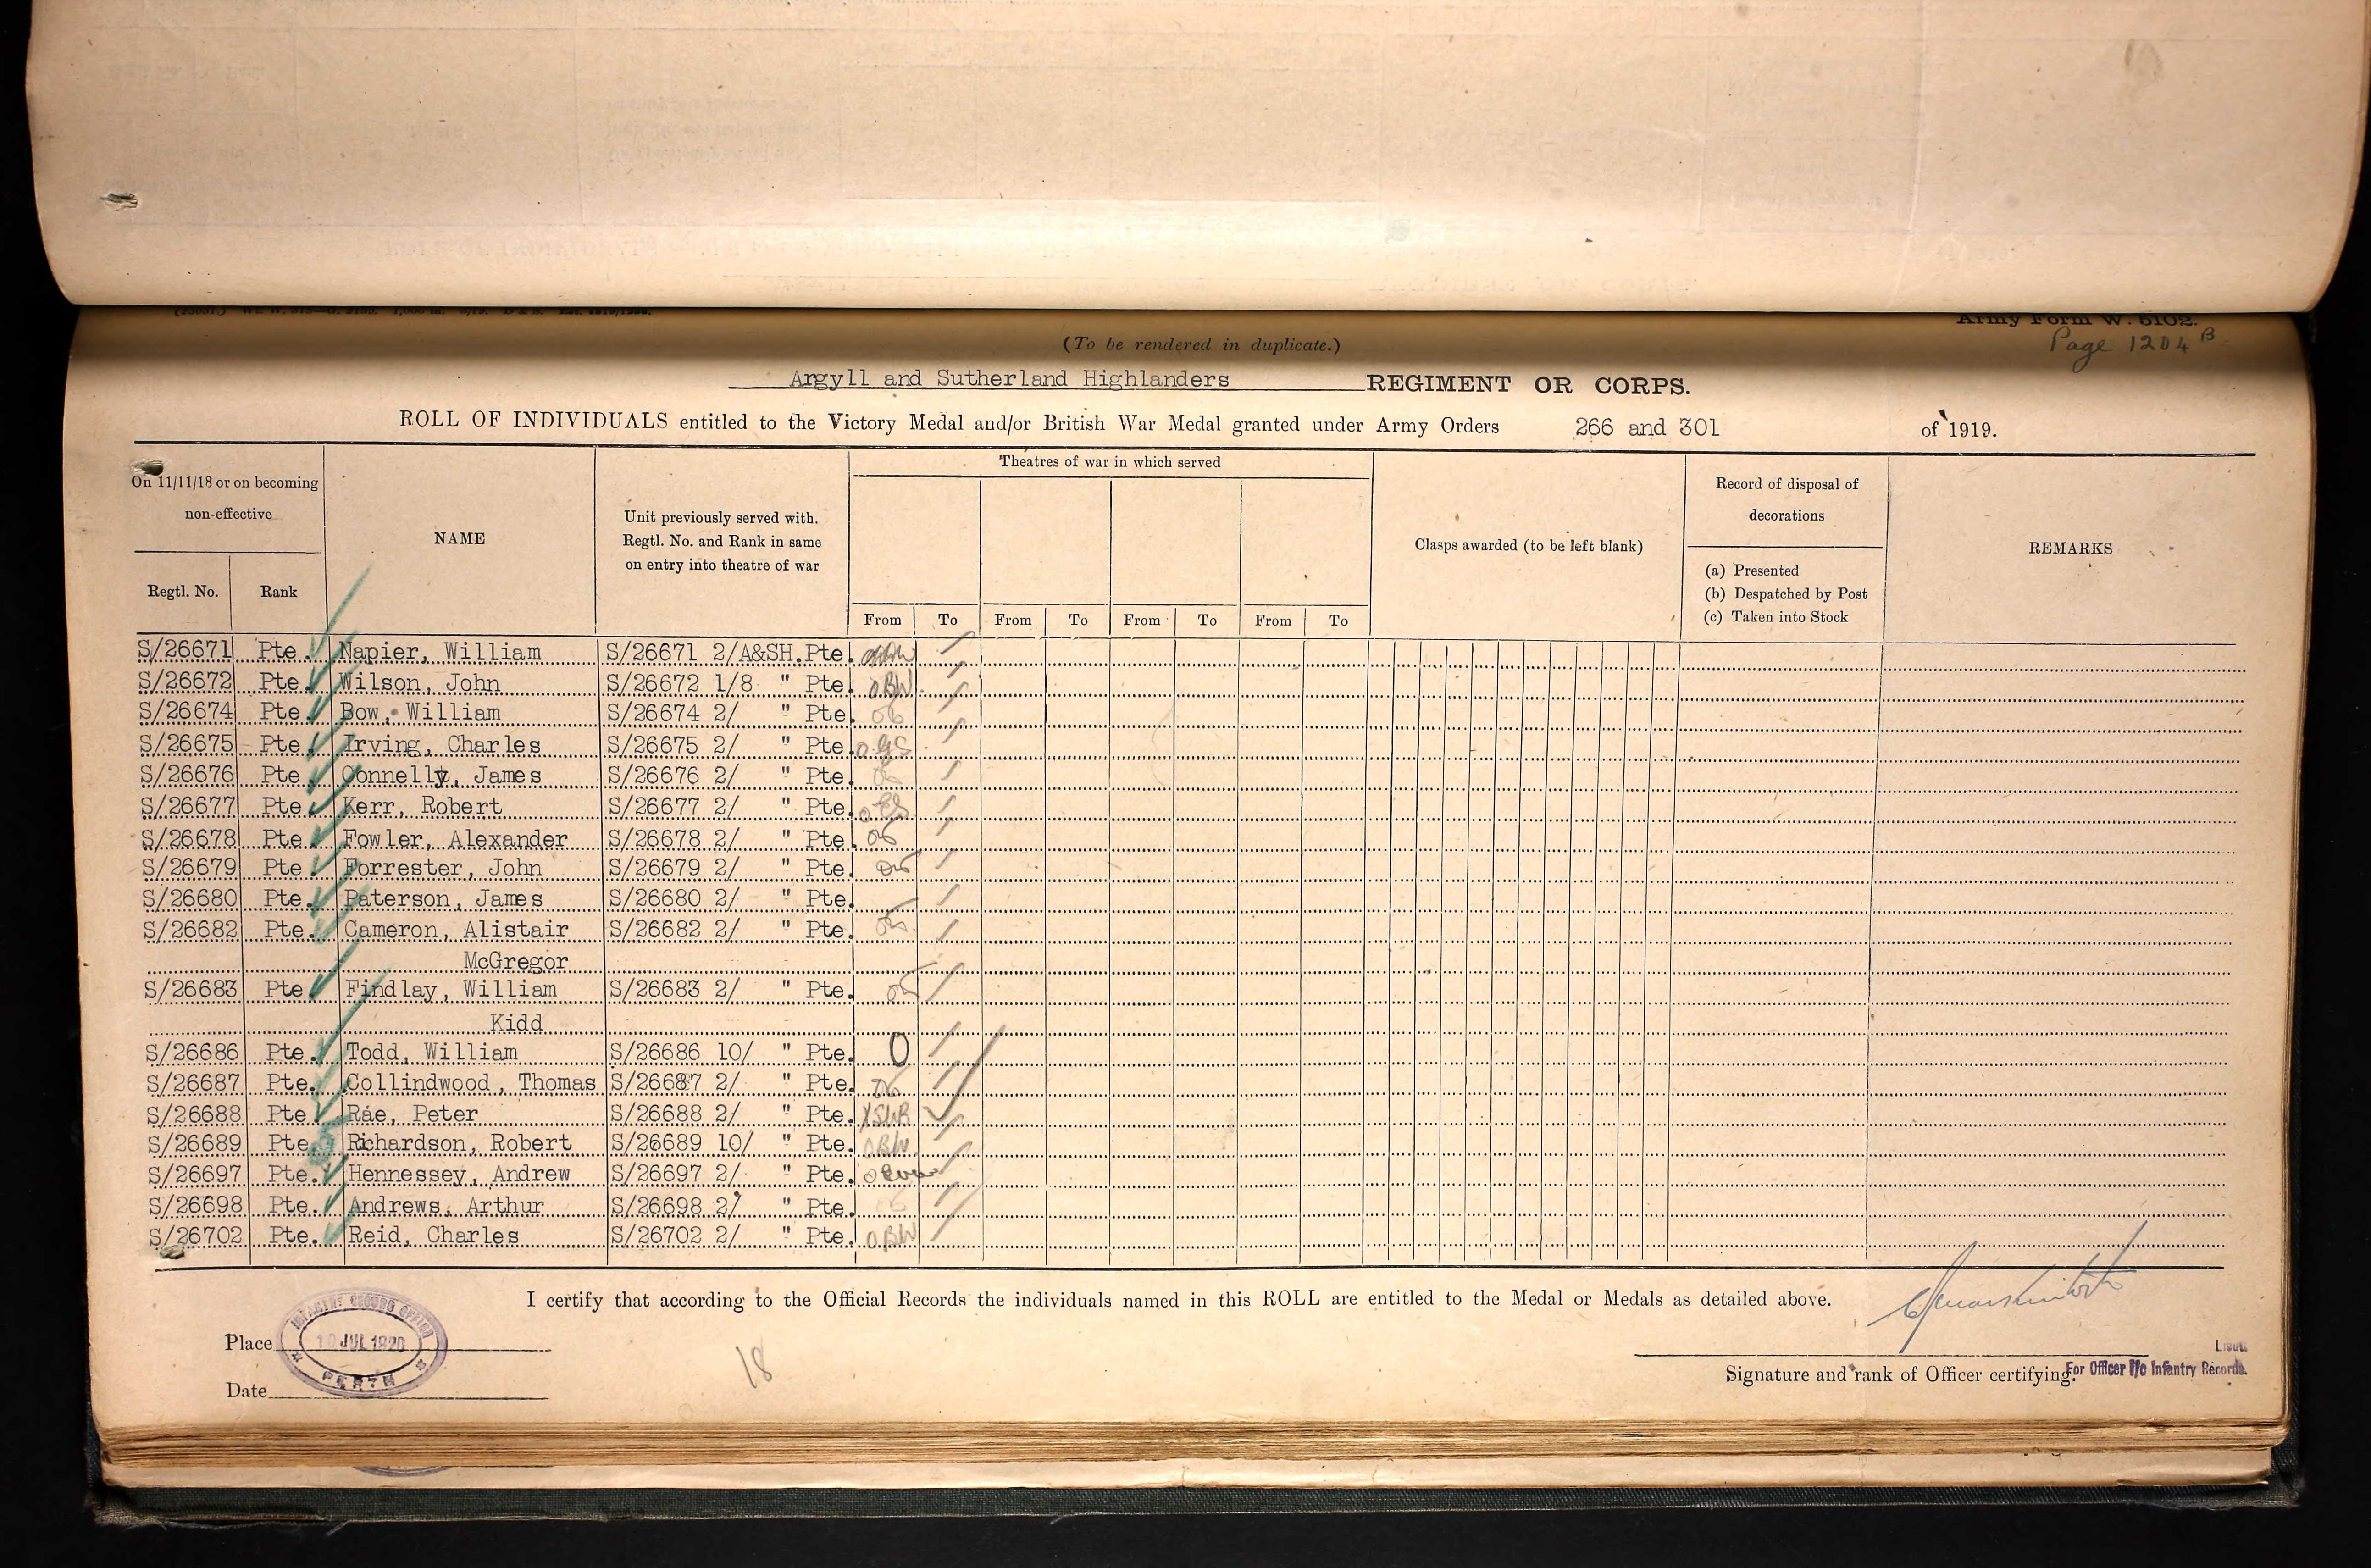 Army Form W. 5102.
Page 1204 B
(To be rendered in duplicate.)
Argyll and Sutherland Highlanders REGIMENT OR CORPS.
ROLL OF INDIVIDUALS entitled to the Victory Medal and/or British War Medal granted under Army Orders 266 and 301 of 1919.
On 11/11/18 or on becoming non-effective
Regtl. No.
Rank
NAME
Unit previously served with.
Regtl. No. and Rank in same
on entry into theatre of war
Theatres of war in which served
From To From To From To From To
Clasps awarded (to be left blank)
Record of disposal of
decorations
(a) Presented
(b) Despatched by Post
(c) Taken into Stock
REMARKS
S/26671 Pte. Napier, William S/26671 2/A&SH. Pte.
S/26672 Pte. Wilson, John S/26672 1/8 " Pte. OBW
S/26674 Pte. Bow, William S/26674 2/ " Pte.
S/26675 Pte. Irving, Charles S/26675 2/ " Pte.
S/26676 Pte. Connelly, James S/26676 2/ " Pte.
S/26677 Pte. Kerr, Robert S/26677 2/ " Pte.
S/26678 Pte. Fowler, Alexander S/26678 2/ " Pte.
S/26679 Pte. Forrester, John S/26679 2/ " Pte.
S/26680 Pte. Paterson, James S/26680 2/ " Pte.
S/26682 Pte. Cameron, Alistair S/26682 2/ " Pte.
McGregor
S/26683 Pte. Findlay, William S/26683 2/ " Pte.
Kidd
S/26686 Pte. Todd, William S/26686 10/ " Pte. O
S/26687 Pte. Collindwood, Thomas S/26687 2/ " Pte.
S/26688 Pte. Rae, Peter S/26688 2/ " Pte.
S/26689 Pte. Richardson, Robert S/26689 10/ " Pte. OBW
S/26697 Pte. Hennessey, Andrew S/26697 2/ " Pte.
S/26698 Pte. Andrews, Arthur S/26698 2/ " Pte.
S/26702 Pte. Reid, Charles S/26702 2/ " Pte. OBW
I certify that according to the Official Records the individuals named in this ROLL are entitled to the Medal or Medals as detailed above.
Place
RECORD OFFICE
10 JUL 1920
PERTH
Date
18
Lieut.
Signature and rank of Officer certifying. For Officer I/c Infantry Records.